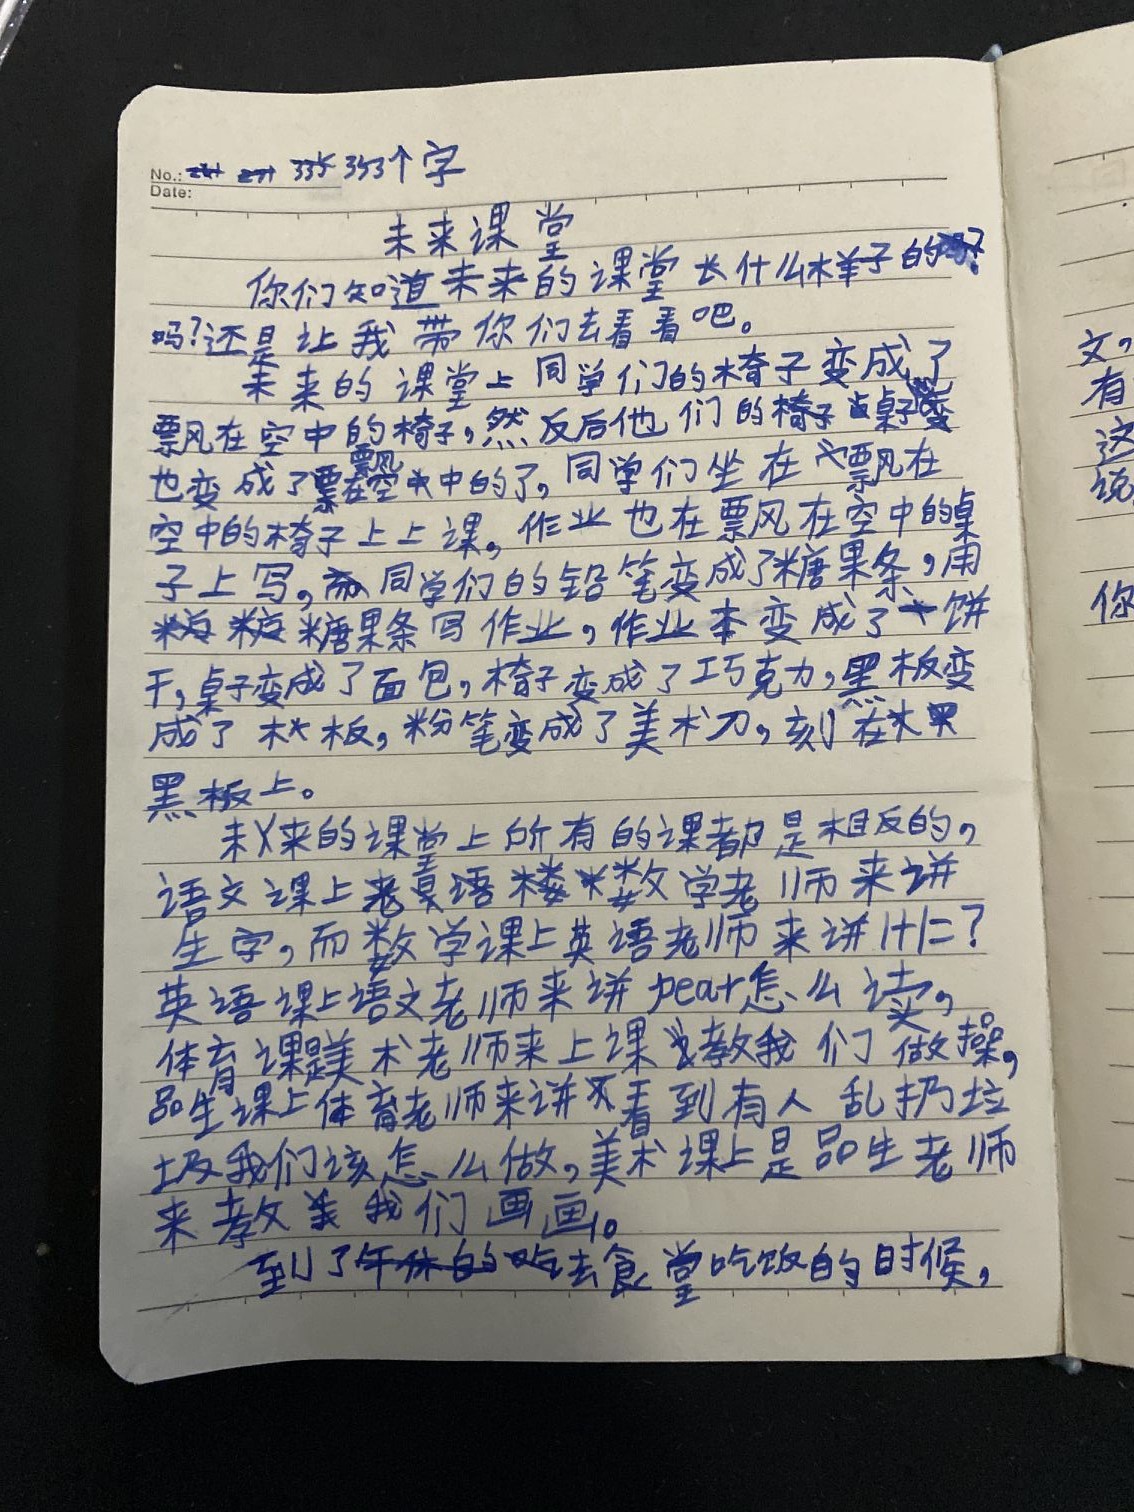 No.: 335 353个字
Date:
未来课堂
你们知道未来的课堂长什么样子的
吗?还是让我带你们去看看吧。
未来的课堂上同学们的椅子变成了
飘在空中的椅子,然后他们的桌子
也变成了飘在空中的了,同学们坐在飘在
空中的椅子上上课,作业也在飘在空中的桌
子上写,同学们的铅笔变成了糖果条,用
糖果条写作业,作业本变成了饼
干,桌子变成了面包,椅子变成了巧克力,黑板变
成了木板,粉笔变成了美术刀,刻在
黑板上。
未来的课堂上所有的课都是相反的,
语文课上数学老师来讲
生字,而数学课上英语老师来讲1+1=?
英语课上语文老师来讲pear怎么读,
体育课是美术老师来上课教我们做操,
品生课上体育老师来讲看到有人乱扔垃
圾我们该怎么做,美术课上是品生老师
来教我们画画。
到了去食堂吃饭的时候,
文,
有
这
说
你